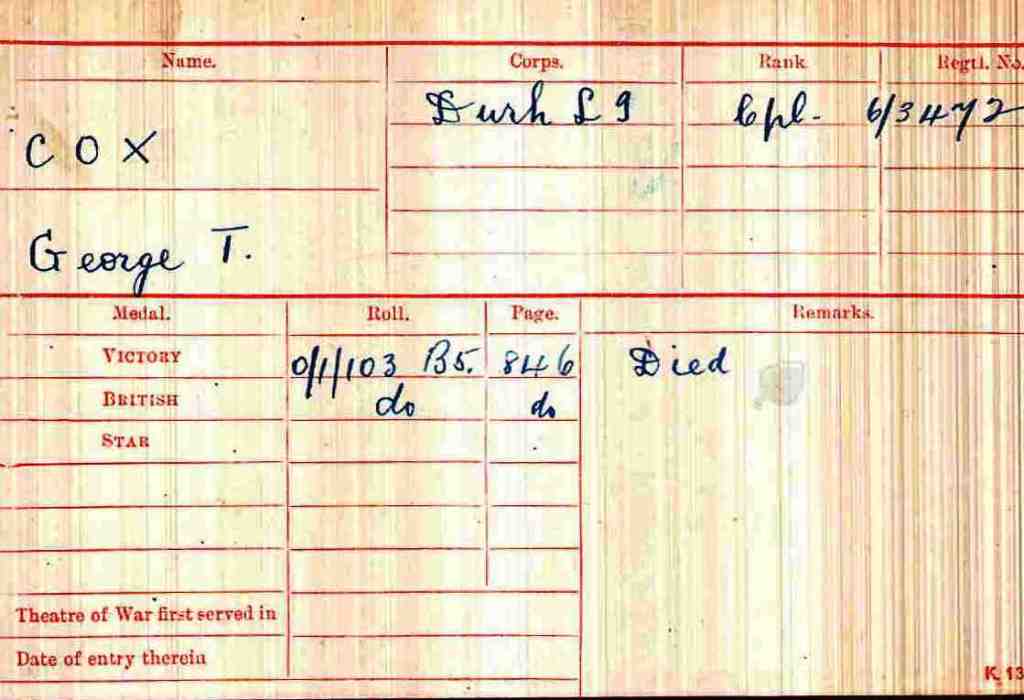 Name. Corps. Rank Regtl. No.
Durh L I Cpl. 6/3472
COX
George T.
Medal. Roll. Page. Remarks.
VICTORY 0/1/103 B5. 846 Died
BRITISH do do
STAR
Theatre of War first served in
Date of entry therein
K. 13